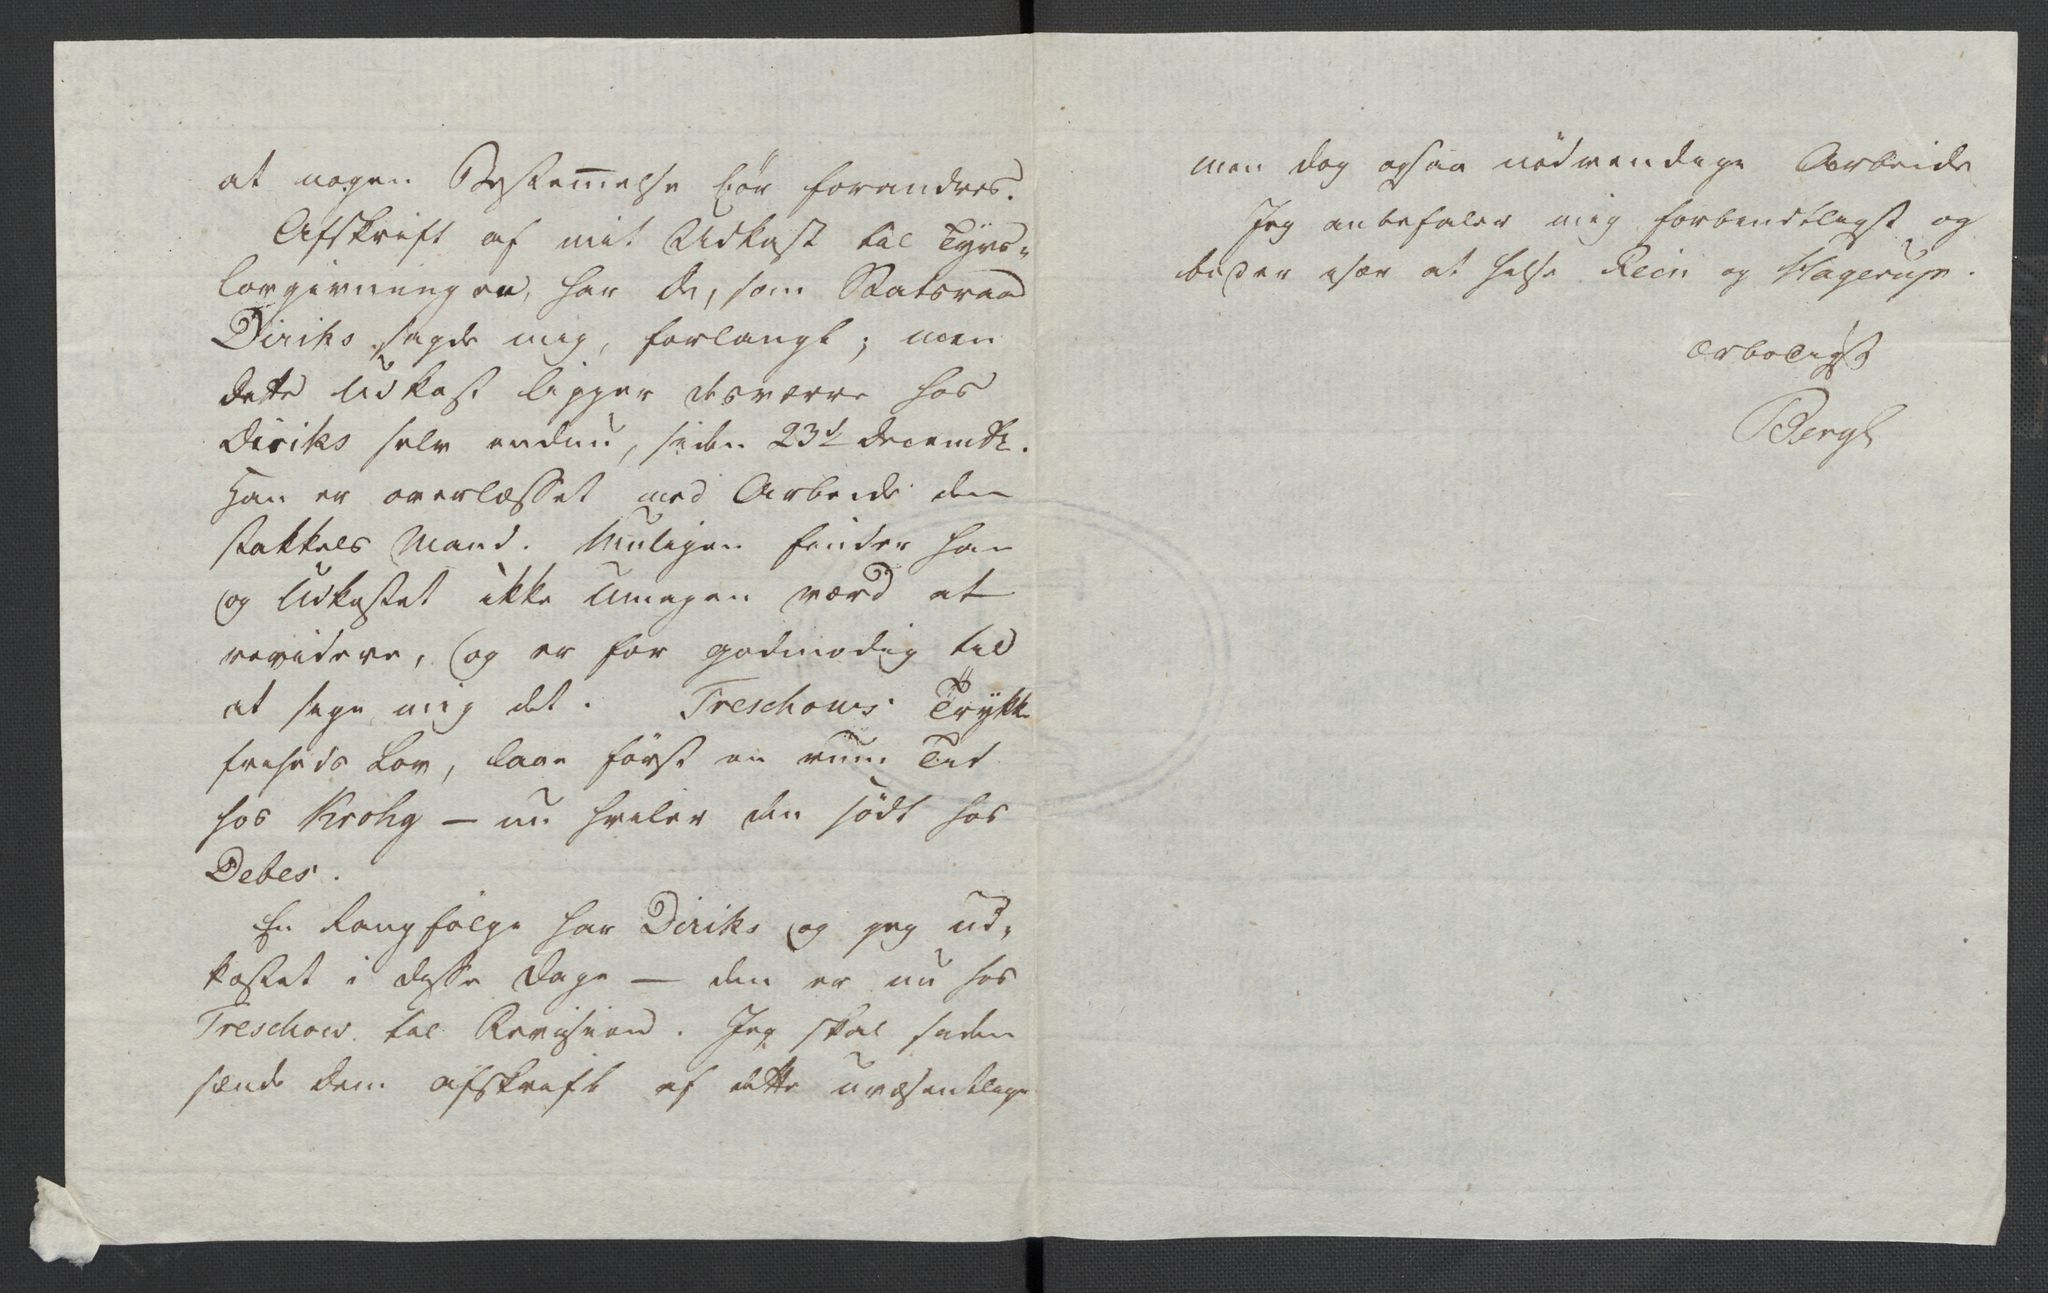 at nogen Bestem̅else bör forandres.
Afskrift af mit Udkast til Tyvs-
lovgivningen, har De, som Statsraad
Diriks sagde mig, forlangt; men
dette Udkast ligger desværre hos
Diriks selv endnu, siden 23d Decembr.
Han er overlæsset med Arbeide den
stakkels Mand. Muligen finder han
og Udkastet ikke Umagen værd at
revidere, og er for godmodig til
at sige mig det. Treschows Trykke
friheds Lov, laae först en rum Tid
hos Krohg — nu hviler den södt hos
Debes.
En Rangfølge har Diriks og jeg ud-
kastet i disse Dage — den er nu hos
Treschow til Revision. Jeg skal siden
sende Dem Afskrift af dette uvæsentlige
men dog ogsaa nödvendige Arbeide
Jeg anbefaler mig forbindtligst og
beder især at hilse Rein og Hagerup.
ærbødigst
Bergh